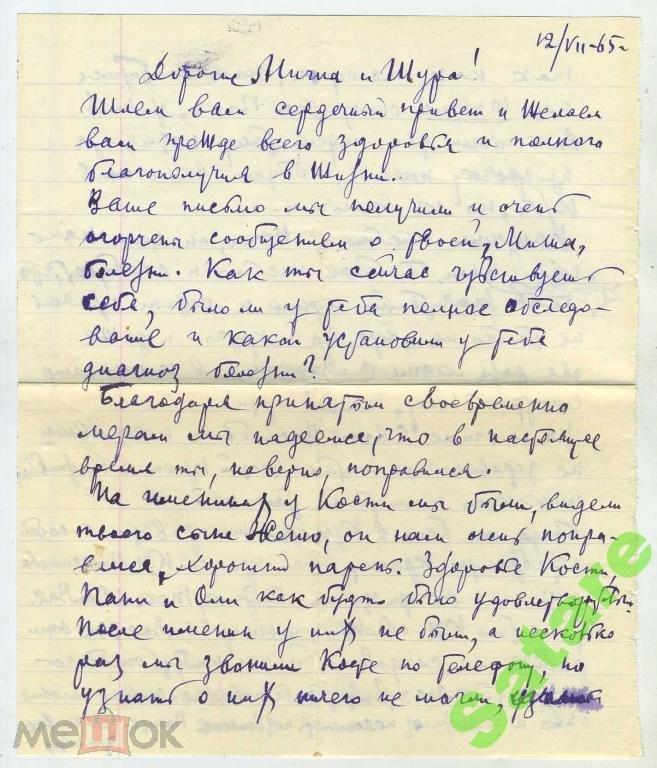 12/VII-65г
Дорогие Миша и Шура!
Шлем вам сердечный привет и желаем
вам прежде всего здоровья и полного
благополучия в жизни.
Ваше письмо мы получили и очень
огорчены сообщением о твоей, Миша,
болезни. Как ты сейчас чувствуешь
себя, было ли у тебя полное обследо-
вание и какой установили у тебя
диагноз болезни?
Благодаря принятым своевременно
мерам мы надеемся, что в настоящее
время ты, наверно, поправился.
На именинах у Кости мы были, видели
твоего сына Женю, он нам очень понра-
вился, хороший парень. Здоровье Кости,
Пани и Оли как будто было удовлетвор
После именин у них не были, а несколько
раз мы звонили Косте по телефону, но
узнать о них ничего не могли,
мешок
Satare